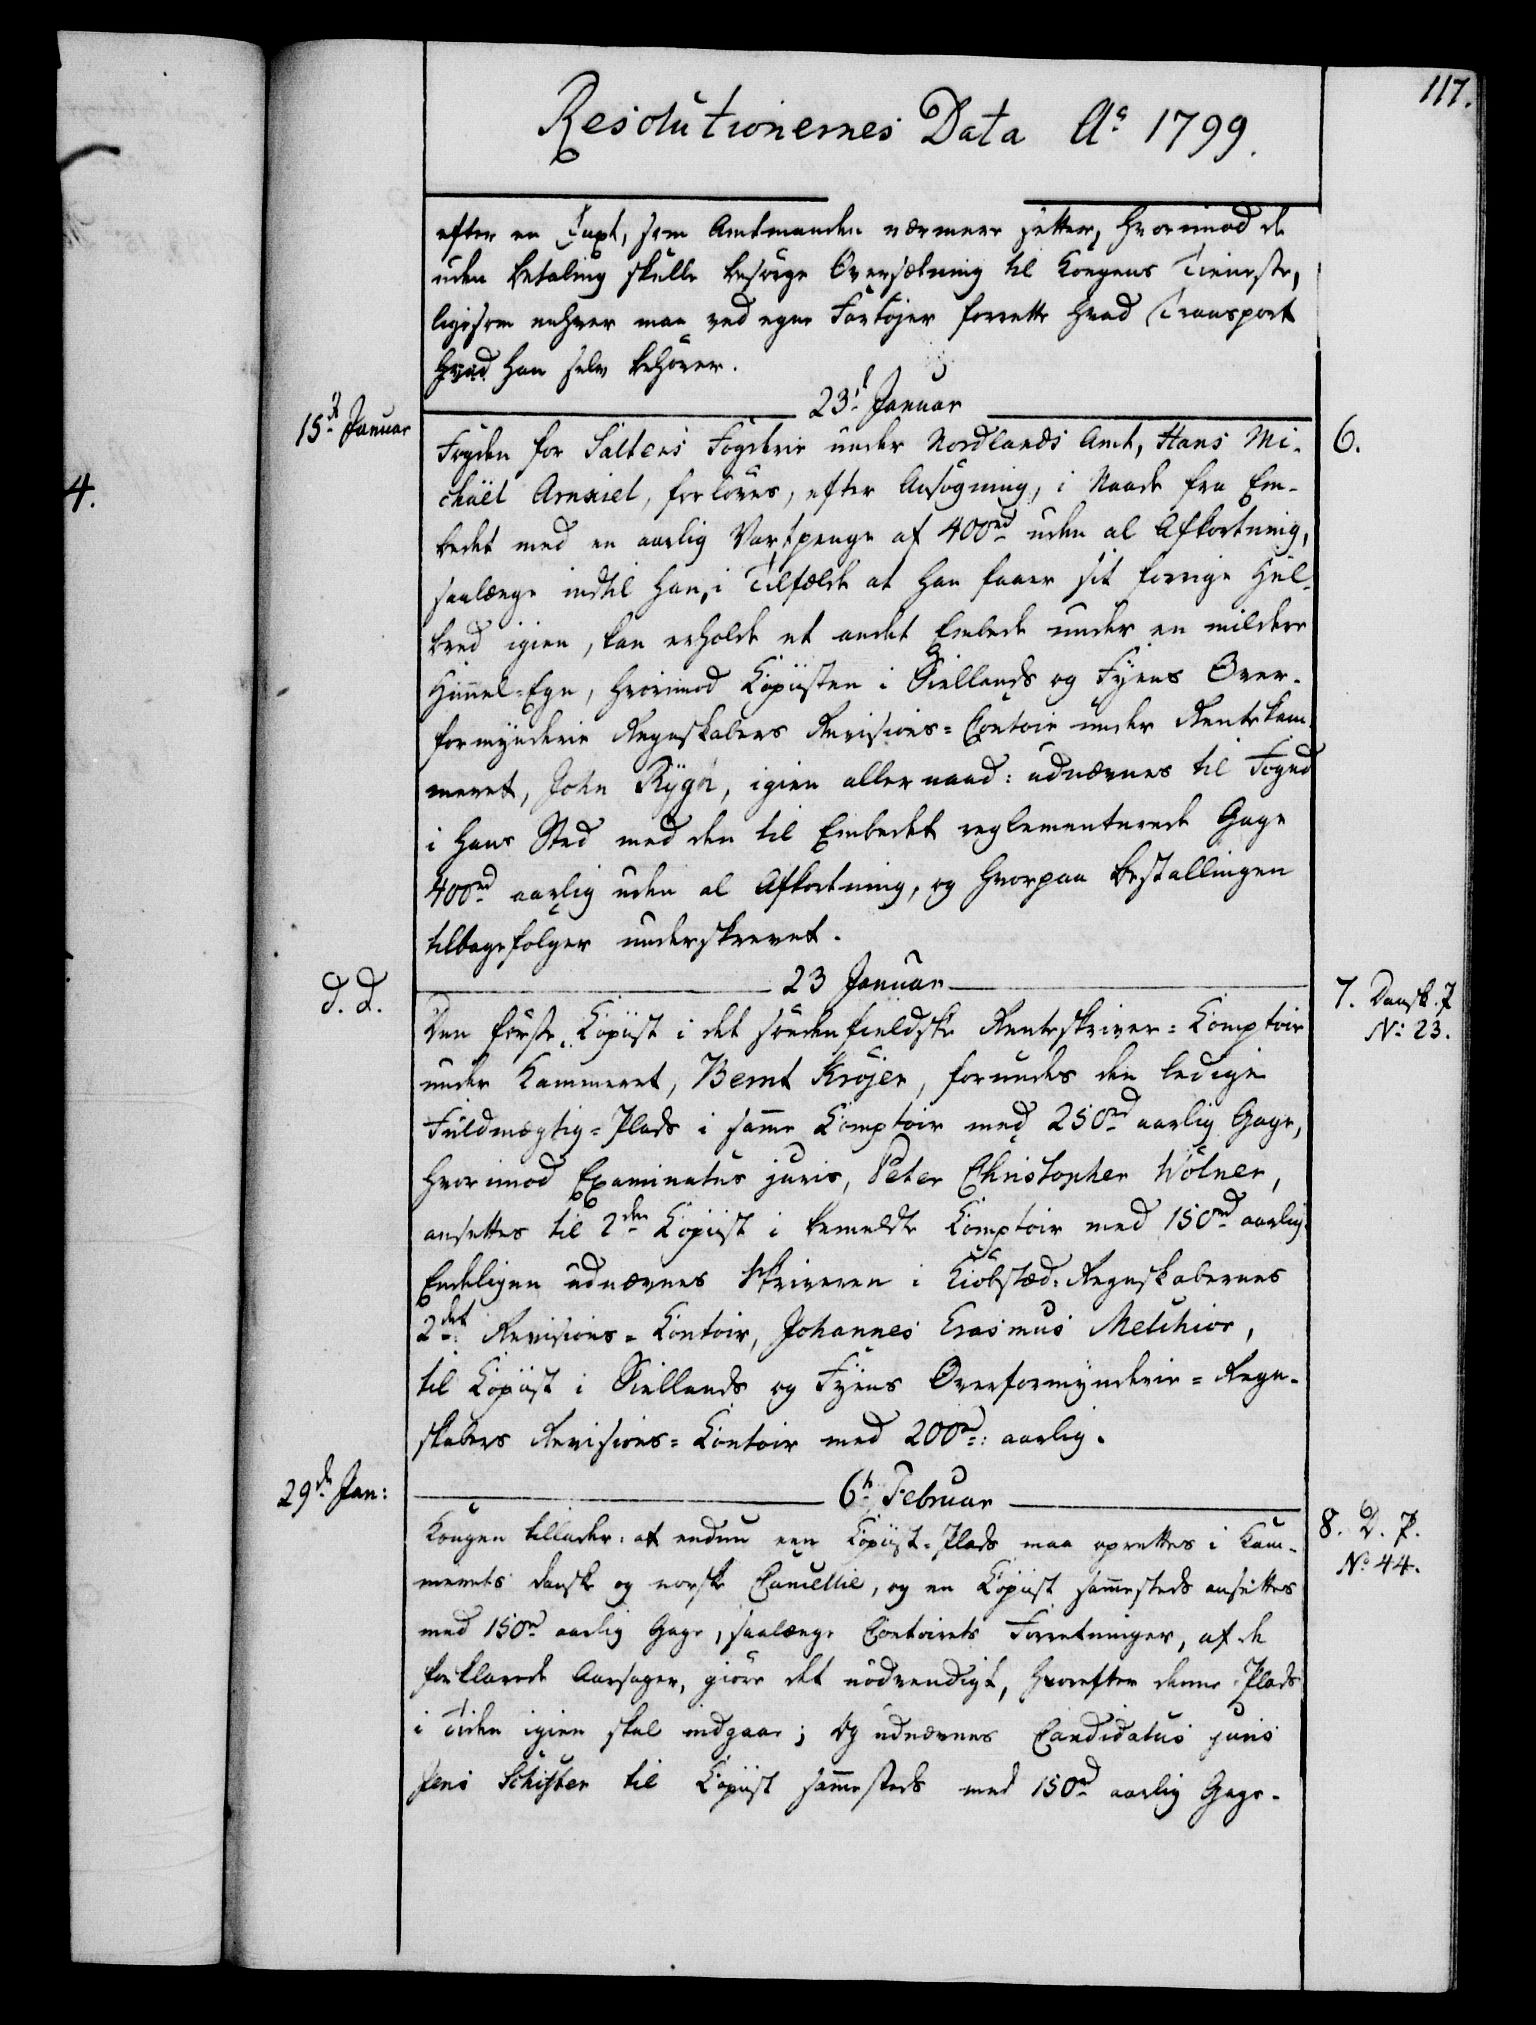 117.
Resolutionernes Data Ao 1799.
efter en Taxt, som Amtmanden nærmere sætter, hvorimod de
uden betaling skulle besörge Oversætning til Kongens Tieneste,
ligesom enhver maa ved egne Fartöjer forrette hvad Transport
hvad han selv behöver.
23d Januar
15de Januar
6.
Fogden for Saltens Fogderie under Nordlands Amt, Hans Mi-
chäel Arnxiel, forlöves, efter Ansögning, i Naade fra Em-
bedet med en aarlig Vartpenge af 400rd uden al Afkortning,
saalænge indtil han, i Tilfælde at han faaer sit forrige Hel-
bred igien, kan erholde et andet Embede under en mildere
Himmel-Egn, hvorimod Copiisten i Siellands og Fyens Over-
formynderie Regnskabers Revisions-Contoir under Rentekam-
meret, John Rygh, igien allernaad: udnævnes til Foged
i hans Sted med den til Embedet reglementerede Gage
400rd aarlig uden al Afkortning, og hvorpaa Bestallingen
tilbagefölger underskrevet.
23 Januar
d. D.
7. Dansk. P
No: 23.
Den förste Copiist i det söndenfieldske Renteskriver-Comptoir
under Kammeret, Bernt Kröjer, forundes den ledige
Fuldmægtig-Plads i samme Comptoir med 250rd aarlig Gage,
hvorimod Examinatus juris, Peter Christopher Wölner,
ansettes til 2den Copiist i bemeldte Comptoir med 150rd aarlig.
Endeligen udnævnes Skriveren i Kiöbstæd-Regnskabernes
2det Revisions-Contoir, Johannes Erasmus Melchior,
til Copiist i Siellands og Fyens Overformynderie-Regn-
skabers Revisions-Contoir med 200rd: aarlig.
6te Februar
29de Jan:
8. D. P.
No 44.
Kongen tillader: at endnu een Copiist-Plads maa oprettes i Kam-
merets danske og norske Cancellie, og en Copiist sammesteds ansettes
med 150rd aarlig Gage, saalænge Contoirets Forretninger, af de
forklarede Aarsager, giöre det nödvendigt, hvorefter denne Plads
i Tiden igien skal indgaae; Og udnævnes Candidatus juris
Jens Schifter til Copiist sammesteds med 150rd aarlig Gage.
4.